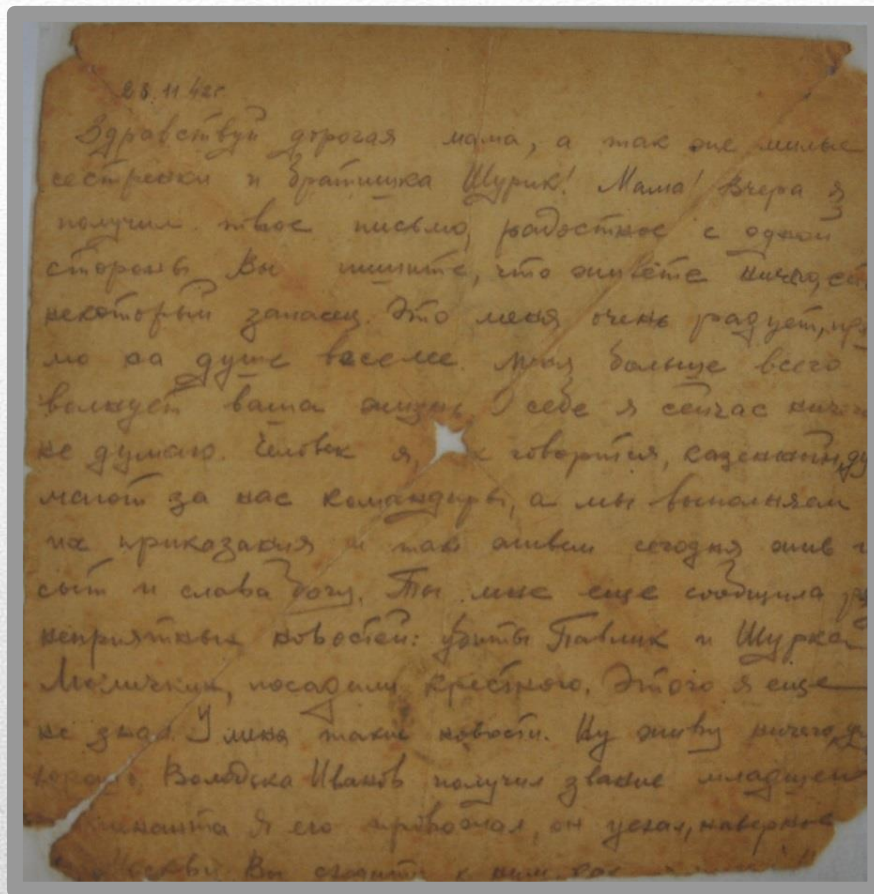 23.11.42г.
Здравствуй дорогая мама, а так же милые
сестренки и братишка Шурик! Мама! Вчера я
получил твое письмо, радостное с одной
стороны Вы пишите, что живёте ничего, есть
некоторый запасец. Это меня очень радует, пря
мо на душе веселе. Меня больше всего
волнует ваша жизнь. О себе я сейчас ничего
не думаю. Человек я, говорится, казенный, ду
мают за нас командиры, а мы выполняем
их приказания и так живем сегодня жив и
сыт и слава богу. Ты мне еще сообщила
неприятных новостей: убиты Павлик и Шурка
посадили крестного. Этого я еще
не знал. У меня такие новости. Ну живу ничего,
хорошо, Володька Иванов получил звание младшего
я его провожал, он уехал, наверное
Вы сходите к ним,